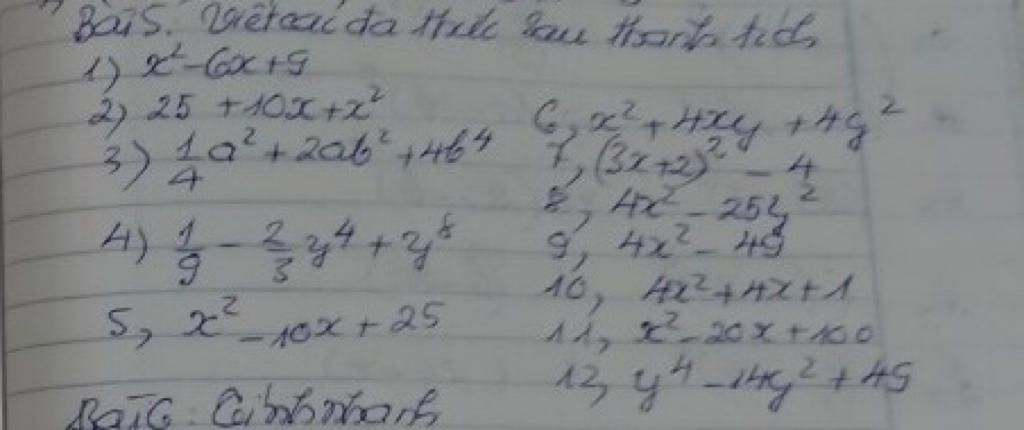 Bài 5. Viết các đa thức sau thành tích
1) x² - 6x + 9
2) 25 + 10x + x²
3) 1/4 a² + 2ab² + 4b⁴
4) 1/9 - 2/3 y⁴ + y⁸
5, x² - 10x + 25
6, x² + 4xy + 4y²
7, (3x+2)² - 4
8, 4x² - 25y²
9, 4x² - 49
10, 4x² + 4x + 1
11, x² - 20x + 100
12, y⁴ - 14y² + 49
Bài 6: Tính nhanh